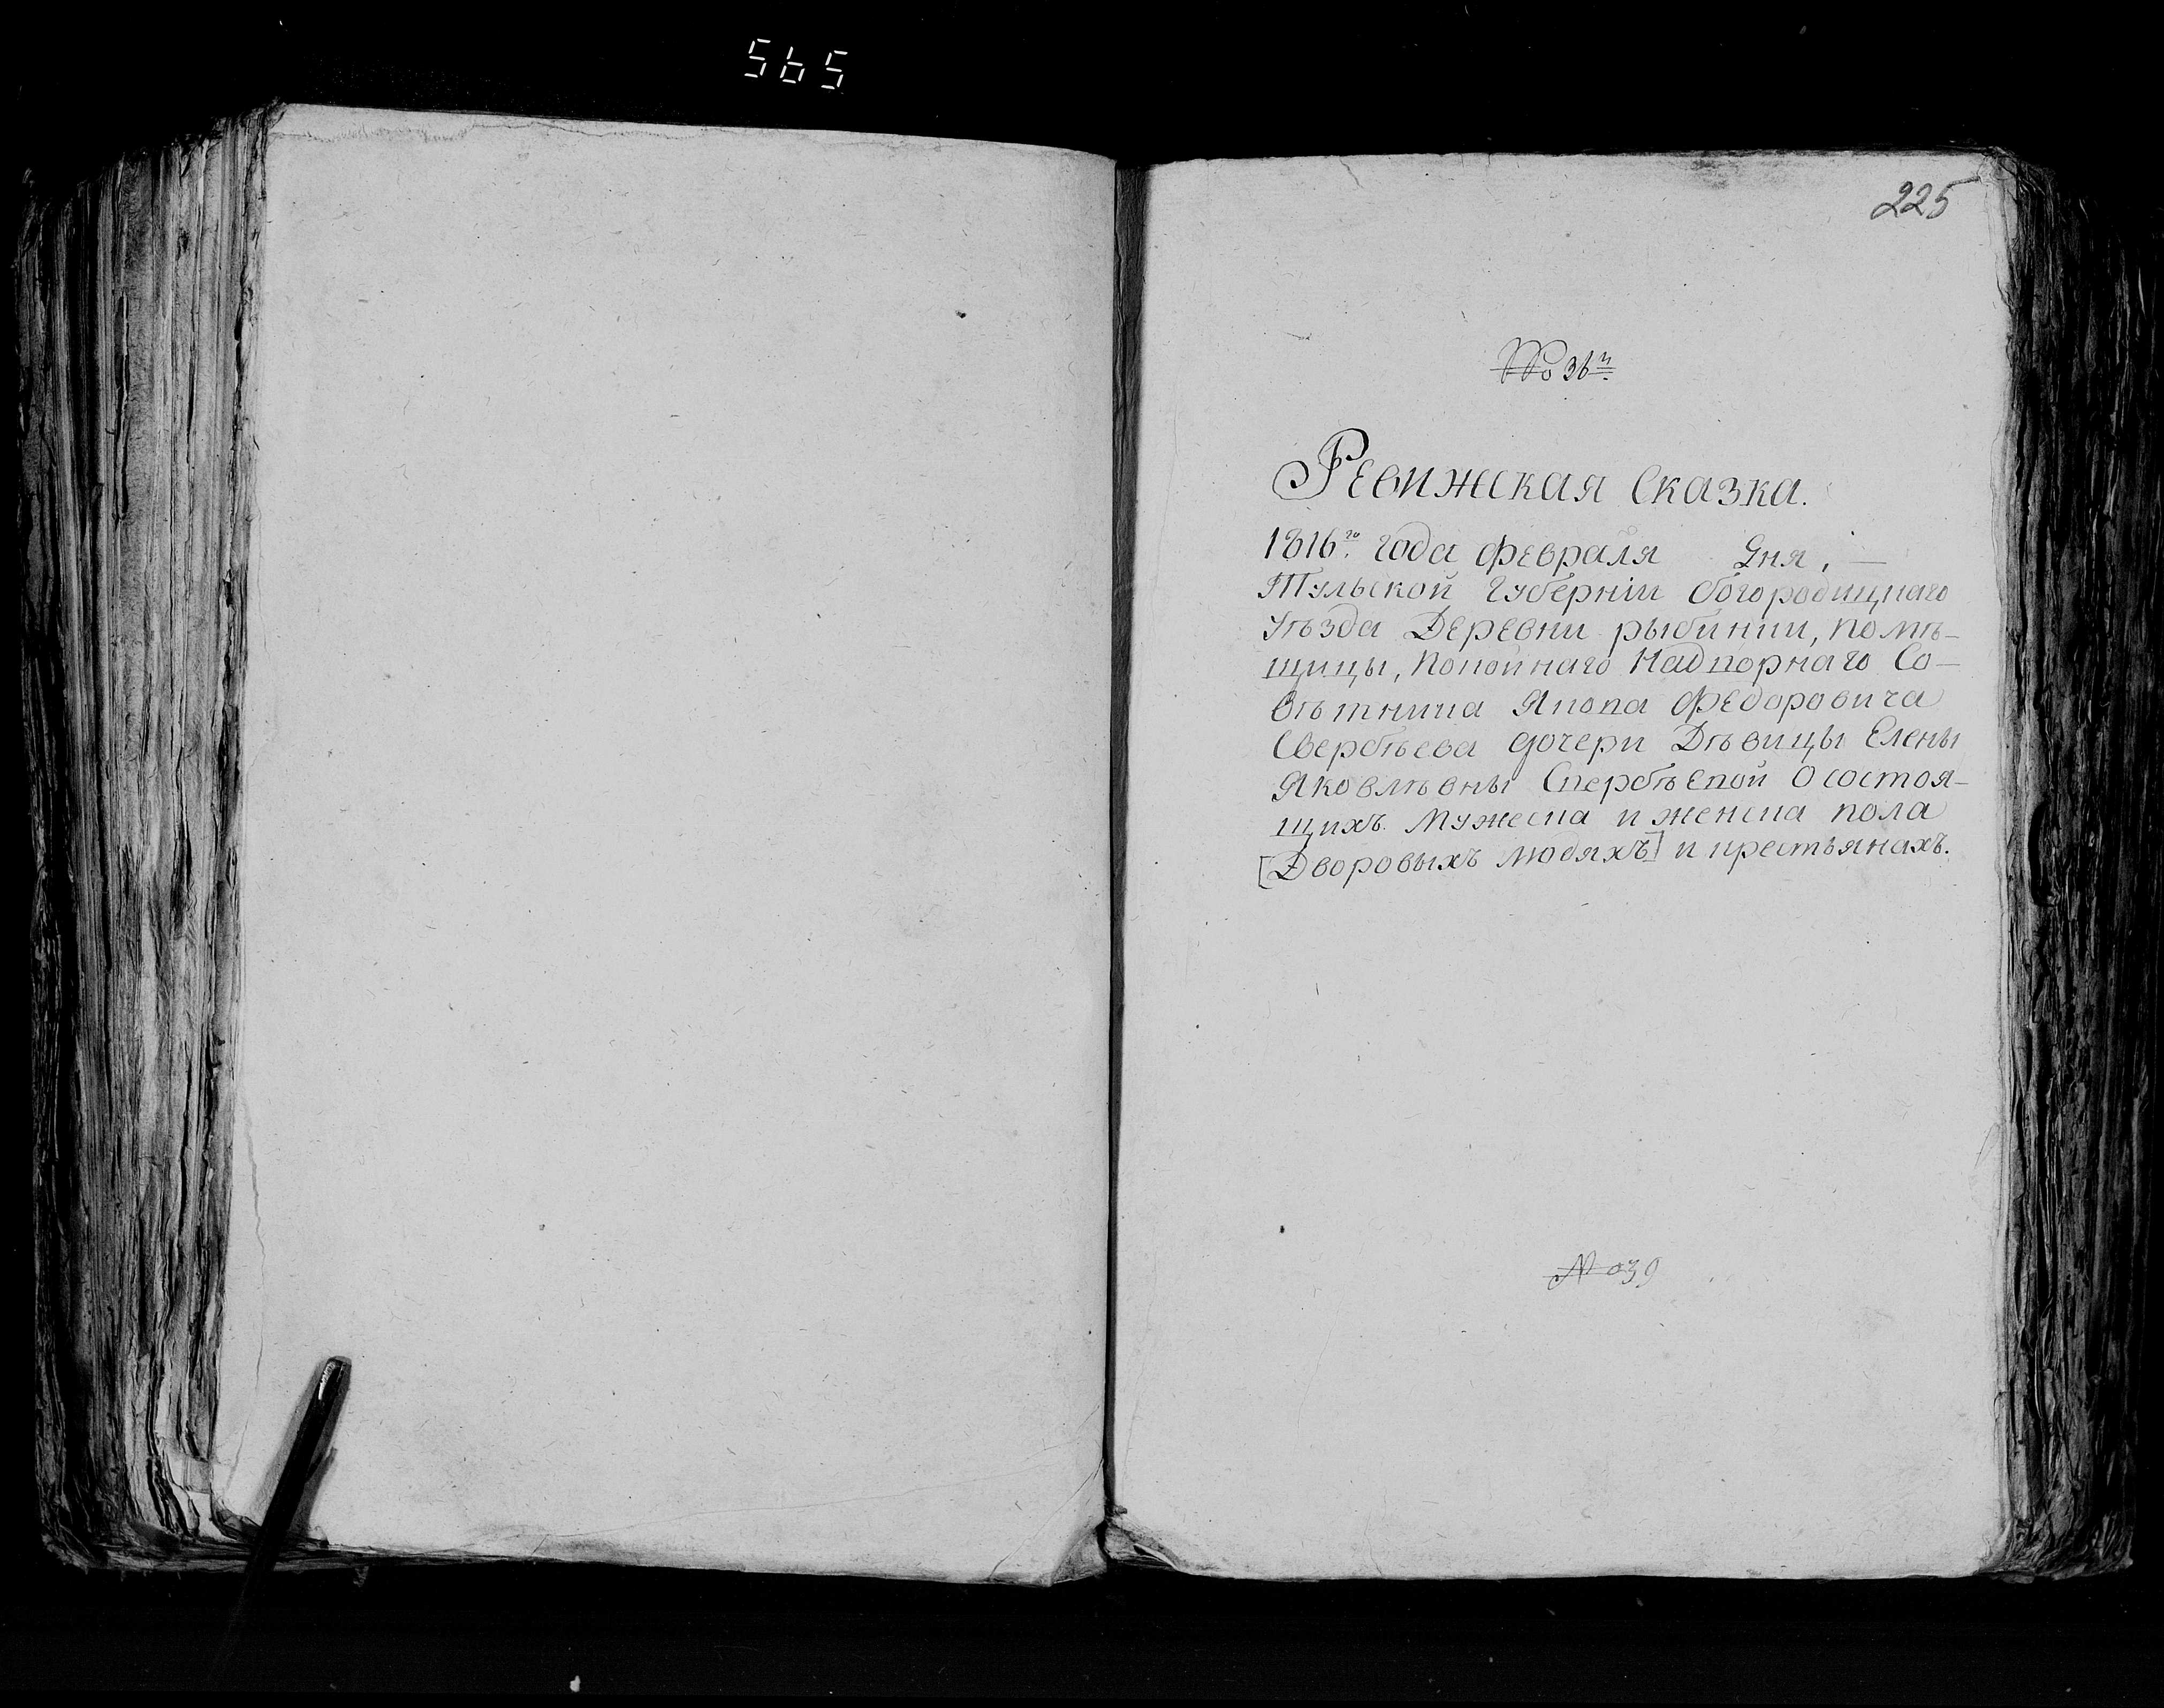 565
225
№ 36й
Ревижская Сказка.
1816го года февраля дня, —
Тульской Губерніи богородицкаго
Уѣзда Деревни рыбинки, помѣ-
щицы, Покойнаго Надворнаго Со-
вѣтника Якова Федоровича
Свербѣева дочери Дѣвицы Елены
Яковлѣвны Свербѣевой О состоя-
щихъ Мужеска и женска пола
[Дворовыхъ людяхъ] и крестьянахъ.
№ 39